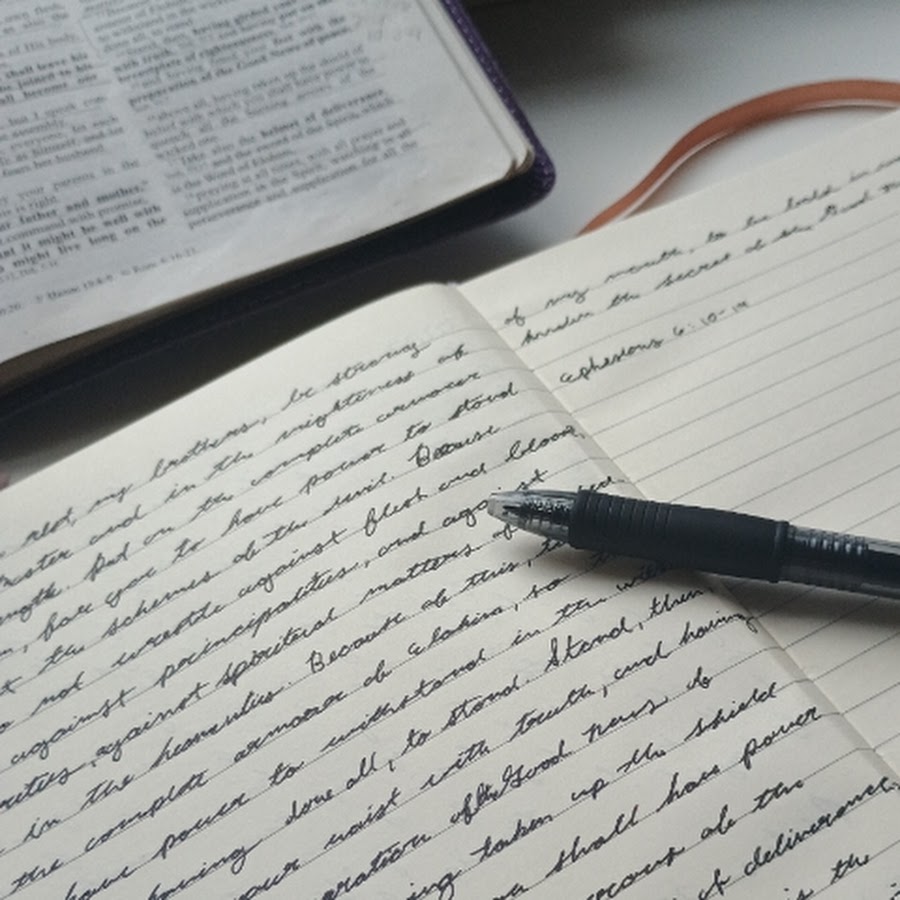 own flesh,
of His body
shall leave his
be joined to his
all become one
but I speak con-
assembly.
everyone, let each
as himself, and let
fears her husband.
your parents in the
is right.
father and mother,"
command with promise,
at it might be well with
might live long on the
, having girded your
with truth, having put on the
breastplate of righteousness,
and having fitted your feet with the
preparation of the Good News of peace
above all, having taken up the shield of
belief with which you shall have power to
quench all the burning arrows of the
wicked one.
Take also the helmet of deliverance,
and the sword of the Spirit, which
is the Word of Elohim,
praying at all times, with all prayer and
supplication in the Spirit, watching in all
perseverance and supplication for all the
rest, my brothers, be strong
Master and in the mightiness of
Put on the complete armour
for you to have power to stand
the schemes of the devil. Because
not wrestle against flesh and blood,
against principalities, and against
against spiritual matters of
in the heavenlies. Because of this, t
the complete armour of Elohim, so
have power to withstand in the wic
having done all, to stand. Stand, then,
your waist with truth, and having
of the Good News of
taken up the shield
shall have power
of the
of deliverance,
is the
of my mouth, to be bold in
known the secret of the Good
Ephesians 6:10-19